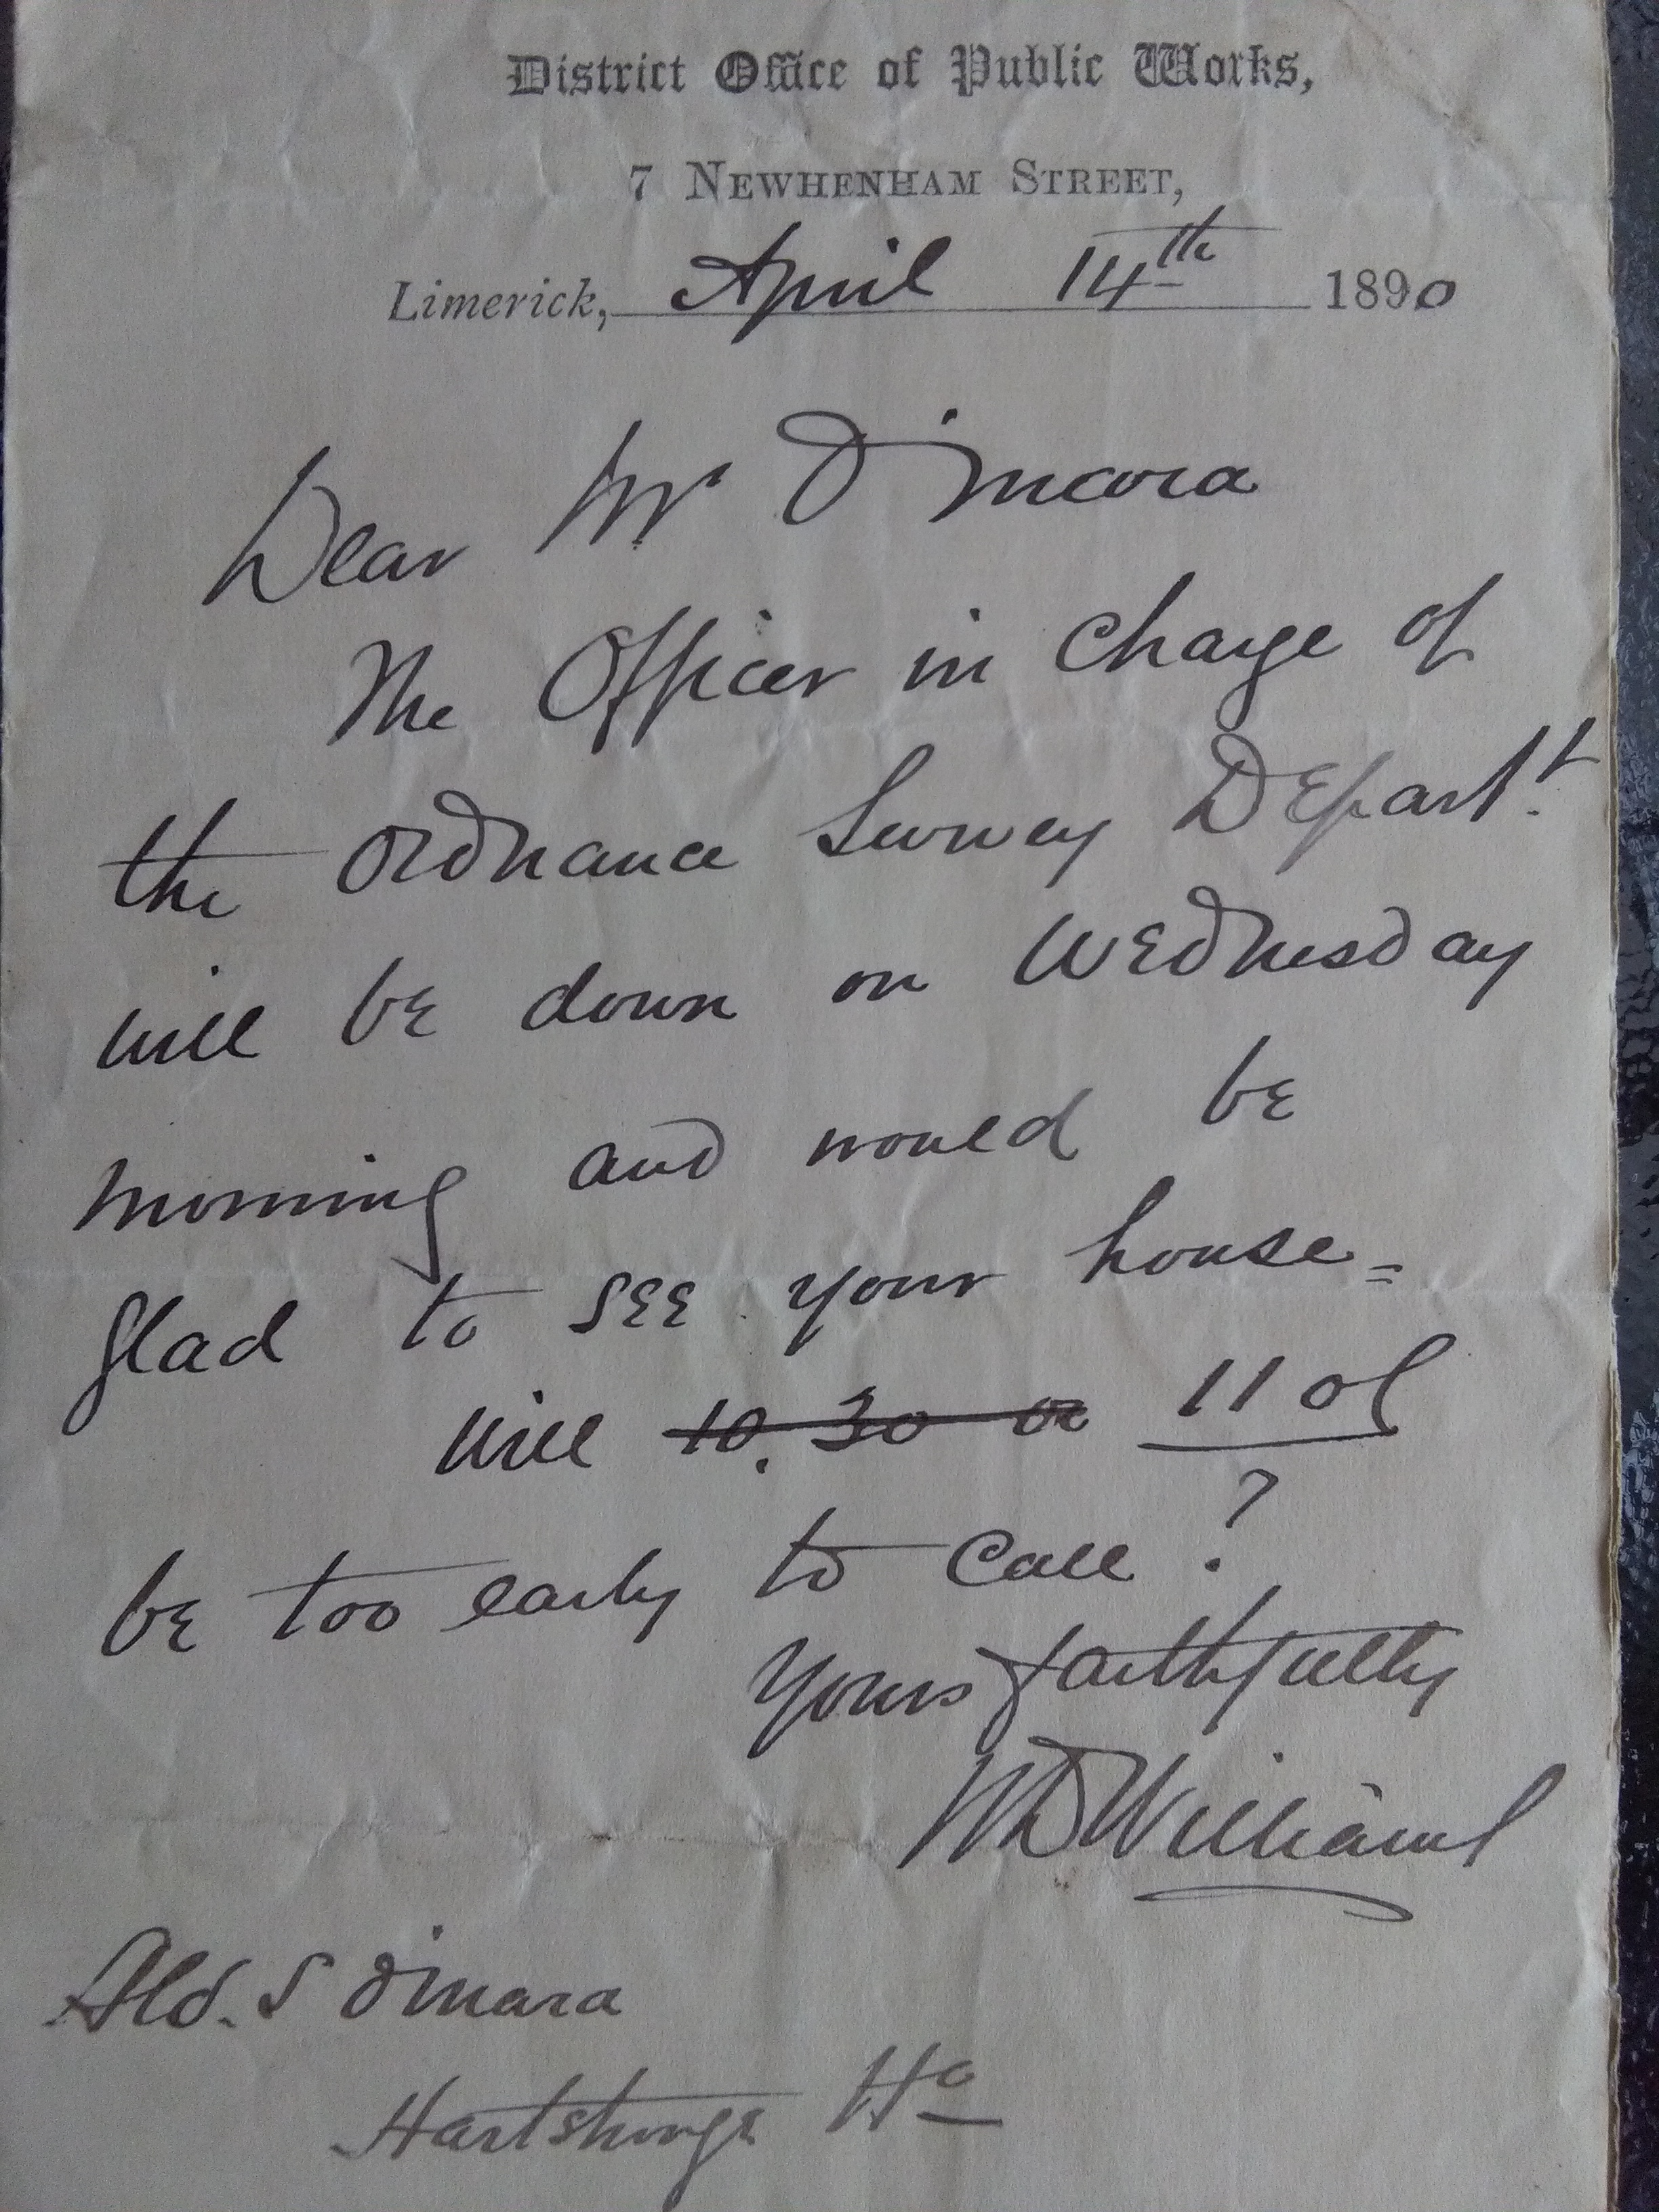 District Office of Public Works,
7 Newhenham Street,
Limerick, April 14th 1890
Dear Mr O'Mara
The Officer in charge of
the Ordnance Survey Depart.t
will be down on Wednesday
morning and would be
glad to see your house =
Will 10.30 or 11 ol
be too early to call ?
Yours faithfully
WD Williams
Ald. S O'Mara
Hartstonge Ho